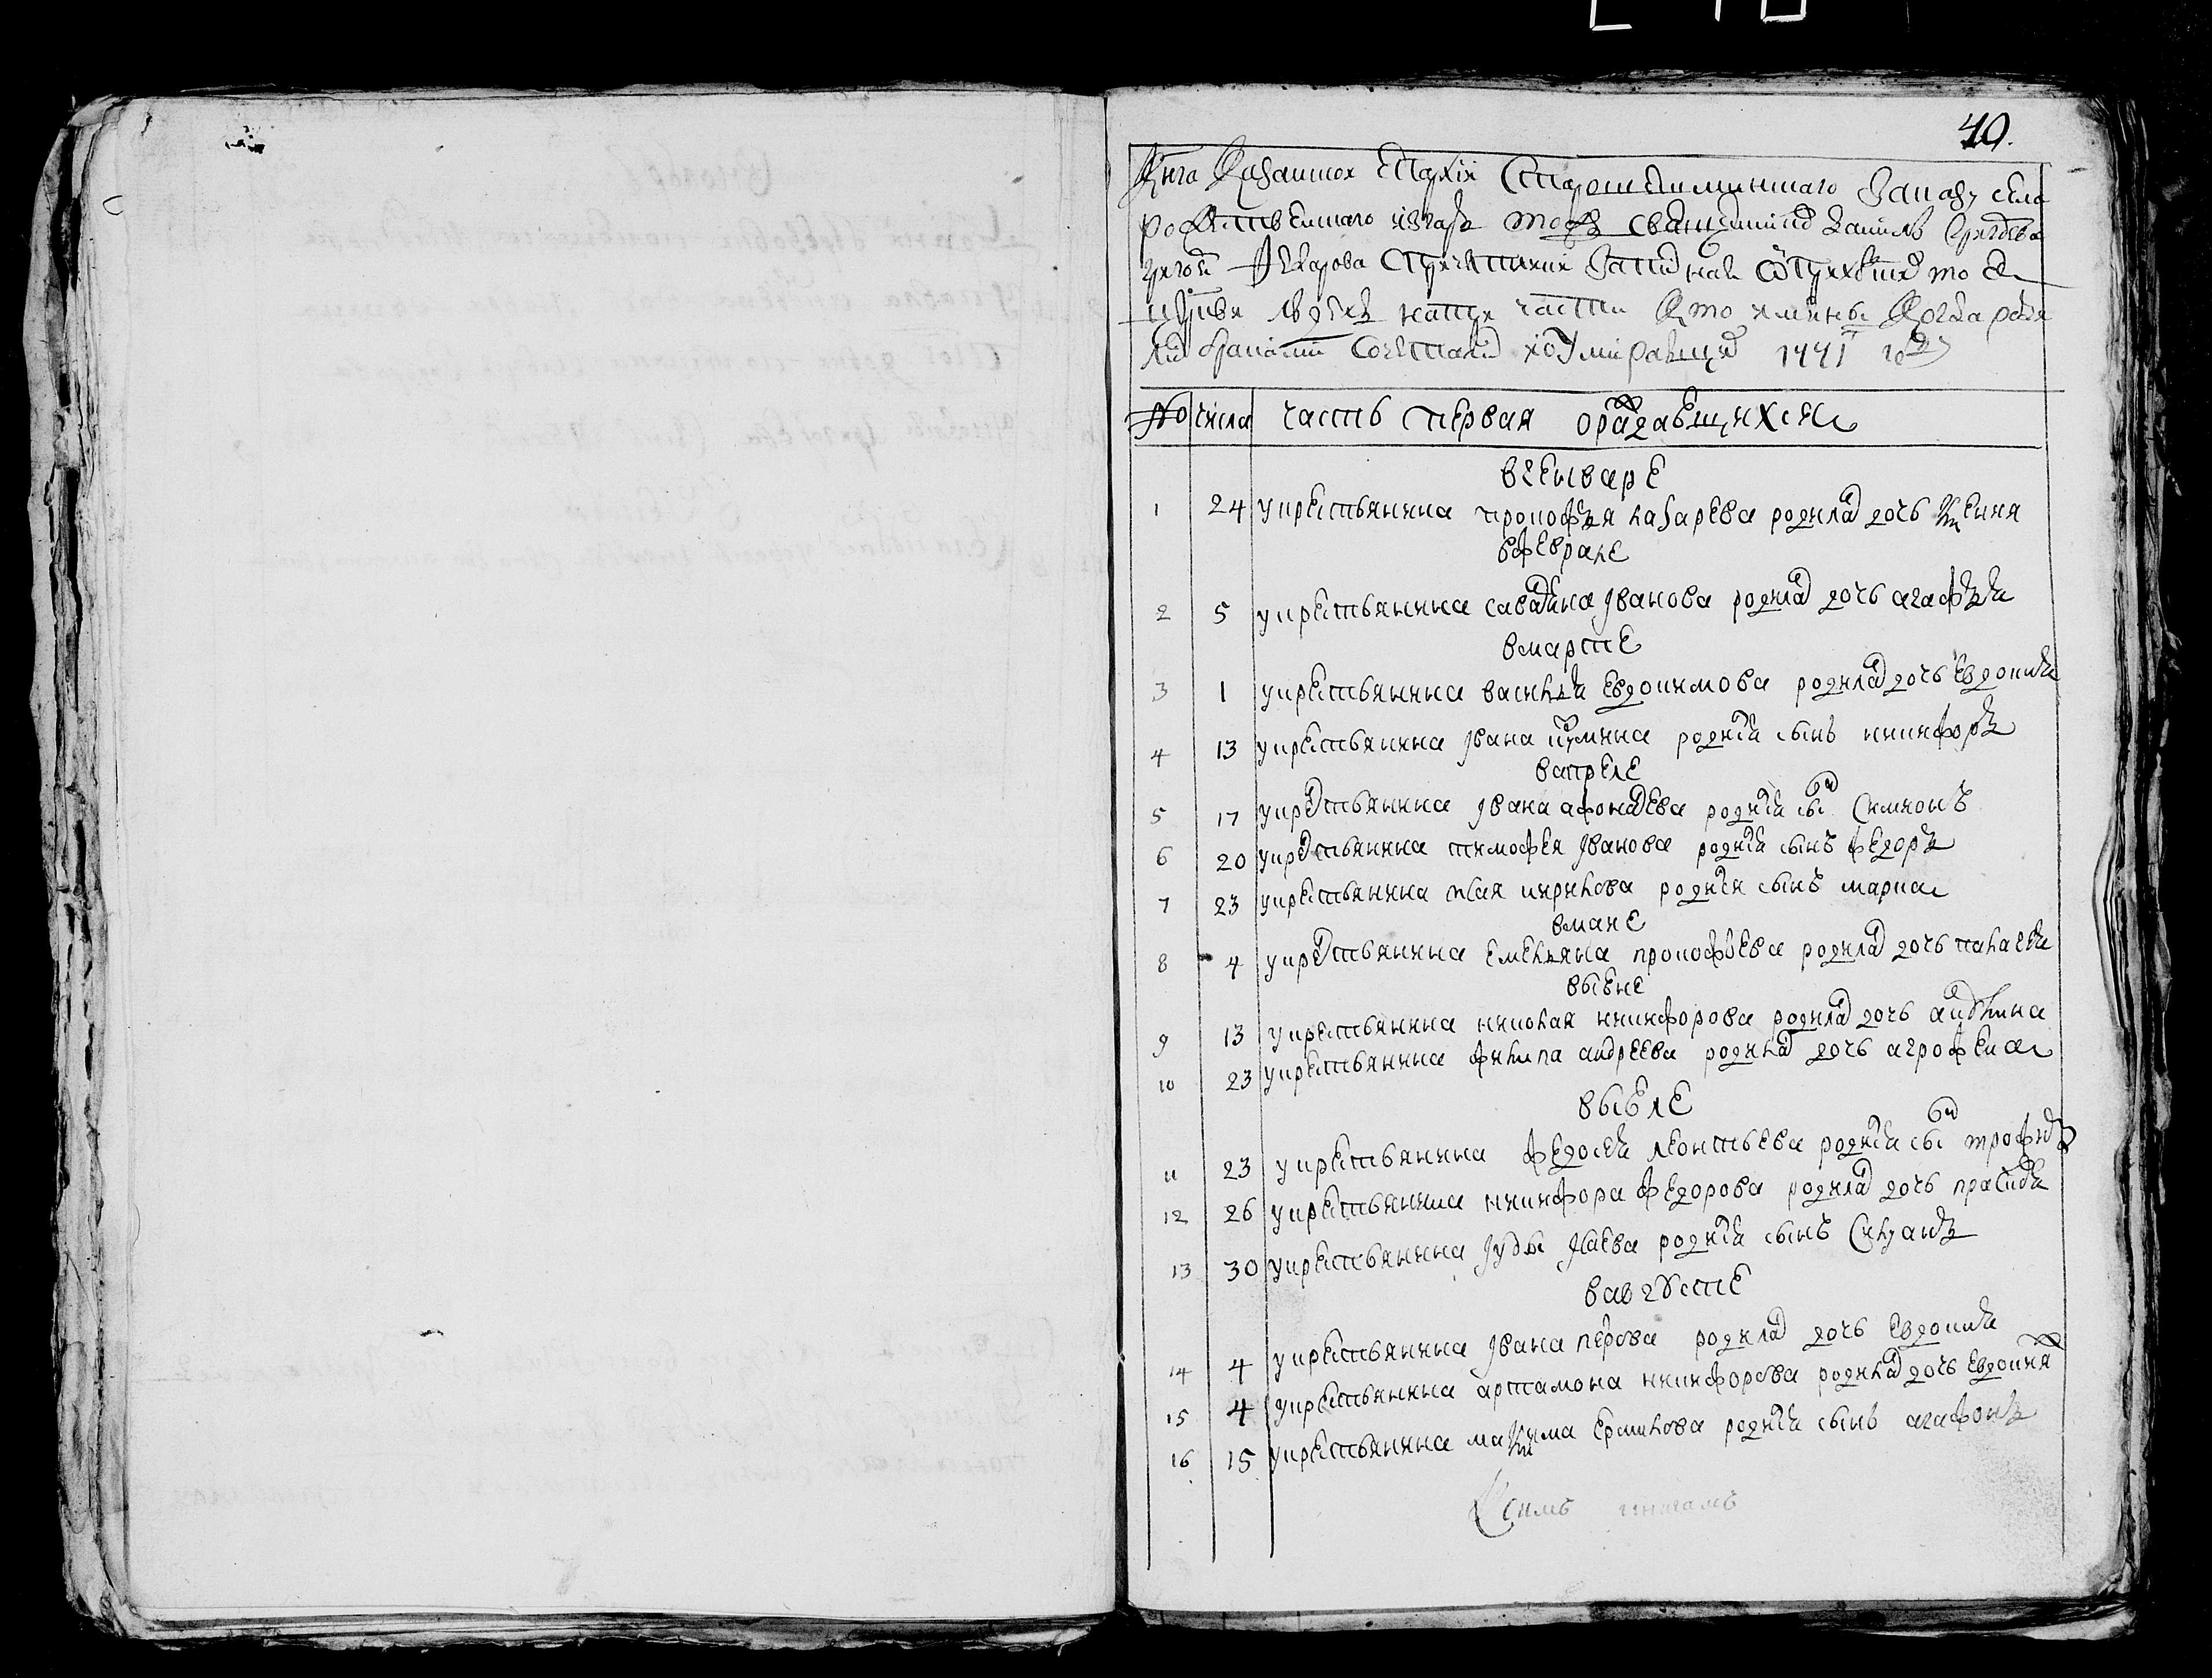 40.
Книга Казанской Епархіи Старошешминского Закаꙁу села
рождественского
Григорей Ѳедорова
церкви на три части кто имяны когда роди
ли 1771 году
№ числа часть первая ораждавшихся
вгенваре
1 24 укрестьянина прокофья лаꙁарева родилас дочь ксения
вфеврале
2 5 укрестьянина савастьяна Iванова родилас дочь агафья
вмарте
3 1 укрестьянина василья Евдокимова родилас дочь Евдокия
4 13 укрестьянина Iвана родился сынъ никифоръ
вапреле
5 17 укрестьянина Iвана афонасева родился сынъ Симионъ
6 20 укрестьянина тимофея Iванова родился сынъ федоръ
7 23 укрестьянина Iсая кирилова родился сынъ марка
вмаие
8 4 укрестьянина Емельяна прокофьева родилас дочь палагея
виюне
9 13 укрестьянина николая никифорова родилас дочь акулина
10 23 укрестьянина филипа андреева родилас дочь агрофена
виюле
11 23 укрестьянина федосея леонтьева родился сынъ трофимъ
12 26 укрестьянина никифора федорова родилас дочь праскидья
13 30 укрестьянина Iуды Iсаева родился сынъ Силуанъ
вавгусте
14 4 укрестьянина Iвана петрова родилас дочь Евдокия
15 4 укрестьянина артамона никифорова родилас дочь Евдокия
16 15 укрестьянина максима Ермилова родился сынъ агафонъ
Ксимъ книгамъ